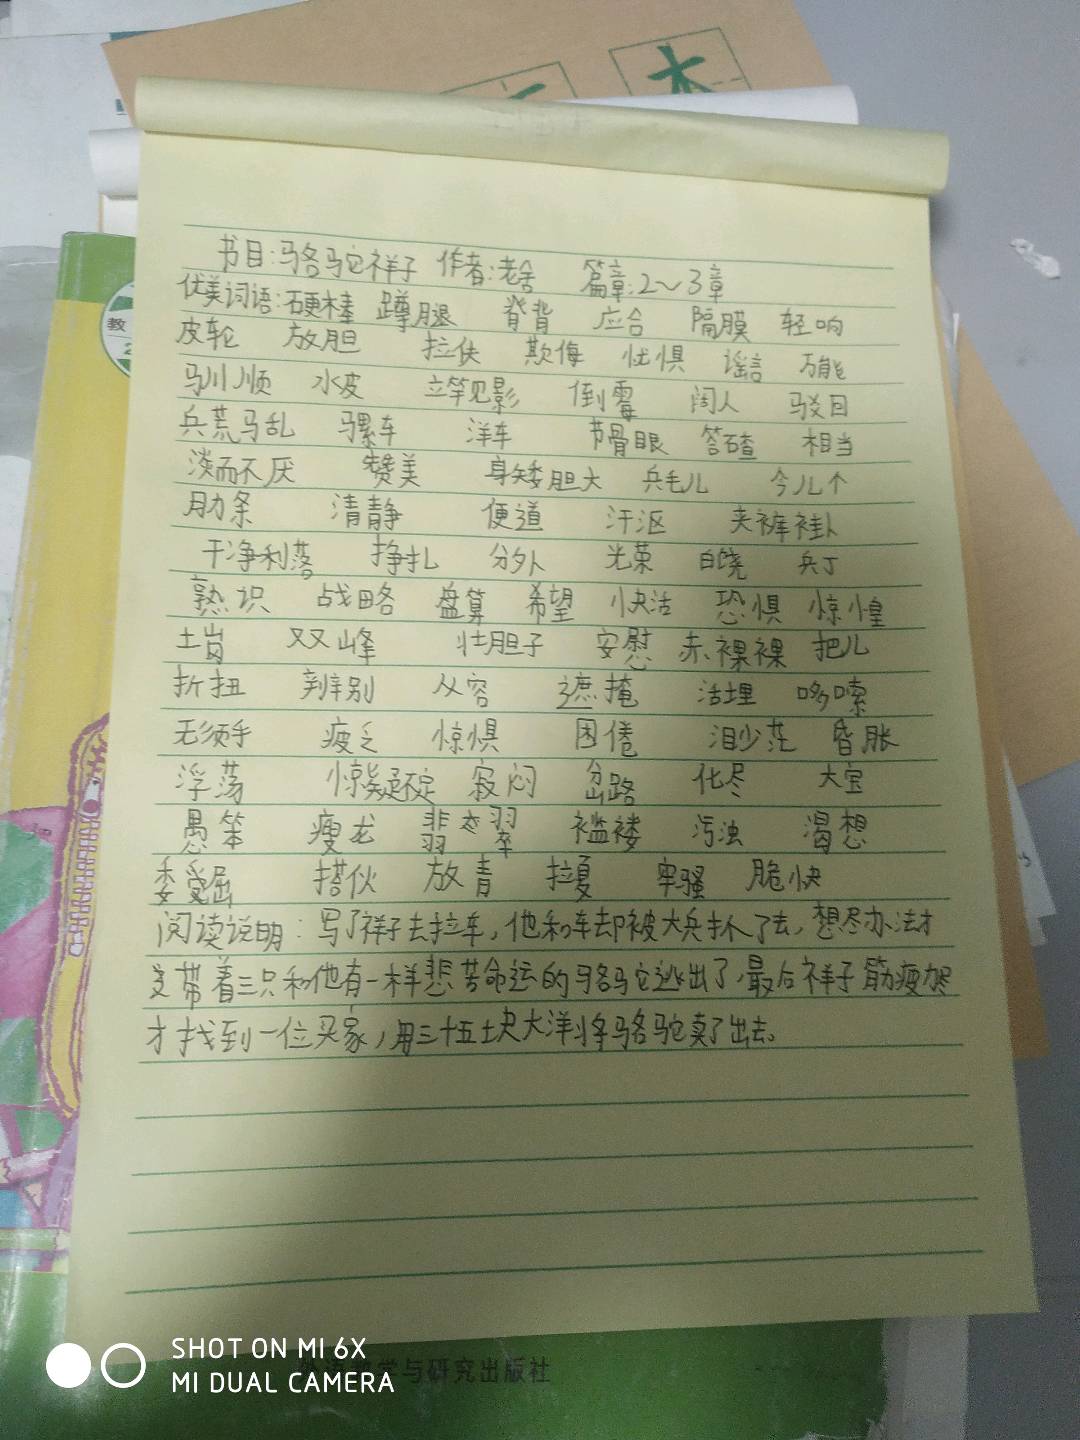 本
教
书目:骆驼祥子 作者:老舍 篇章:2～3章
优美词语:硬棒 蹲腿 脊背 应合 隔膜 轻响
皮轮 放胆 拉伕 欺侮 忧惧 谣言 万能
驯顺 水皮 立竿见影 倒霉 阔人 驳回
兵荒马乱 骡车 洋车 节骨眼 答碴 相当
淡而不厌 赞美 身矮胆大 兵毛儿 今儿个
肋条 清静 便道 汗沤 夹裤褂
干净利落 挣扎 分外 光荣 白饶 兵丁
熟识 战略 盘算 希望 快活 恐惧 惊惶
土岗 双峰 壮胆子 安慰 赤裸裸 把儿
折扭 辨别 从容 遮掩 活埋 哆嗦
无须乎 疲乏 惊惧 困倦 渺茫 昏胀
浮荡 惊疑不定 寂闷 岔路 化尽 大宝
愚笨 瘦龙 翡翠 褴褛 污浊 渴想
委屈 搭伙 放青 拉夏 牢骚 脆快
阅读说明:写了祥子去拉车,他和车却被大兵抓了去,想尽办法才
带着三只和他有一样悲苦命运的骆驼逃出了,最后祥子筋疲力尽
才找到一位买家,用三十五块大洋将骆驼卖了出去。
外语教学与研究出版社
SHOT ON MI 6X
MI DUAL CAMERA